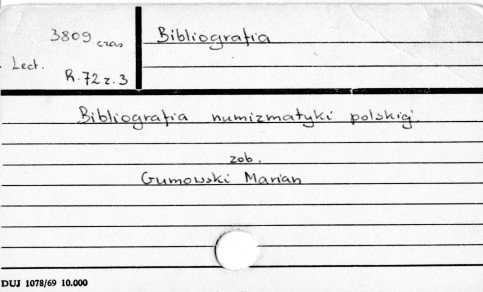 3809 czas
Bibliografia
Lect.
R.72 z.3
Bibliografia numizmatyki polskiej.
zob.
Gumowski Marian
DUJ 1078/69 10.000